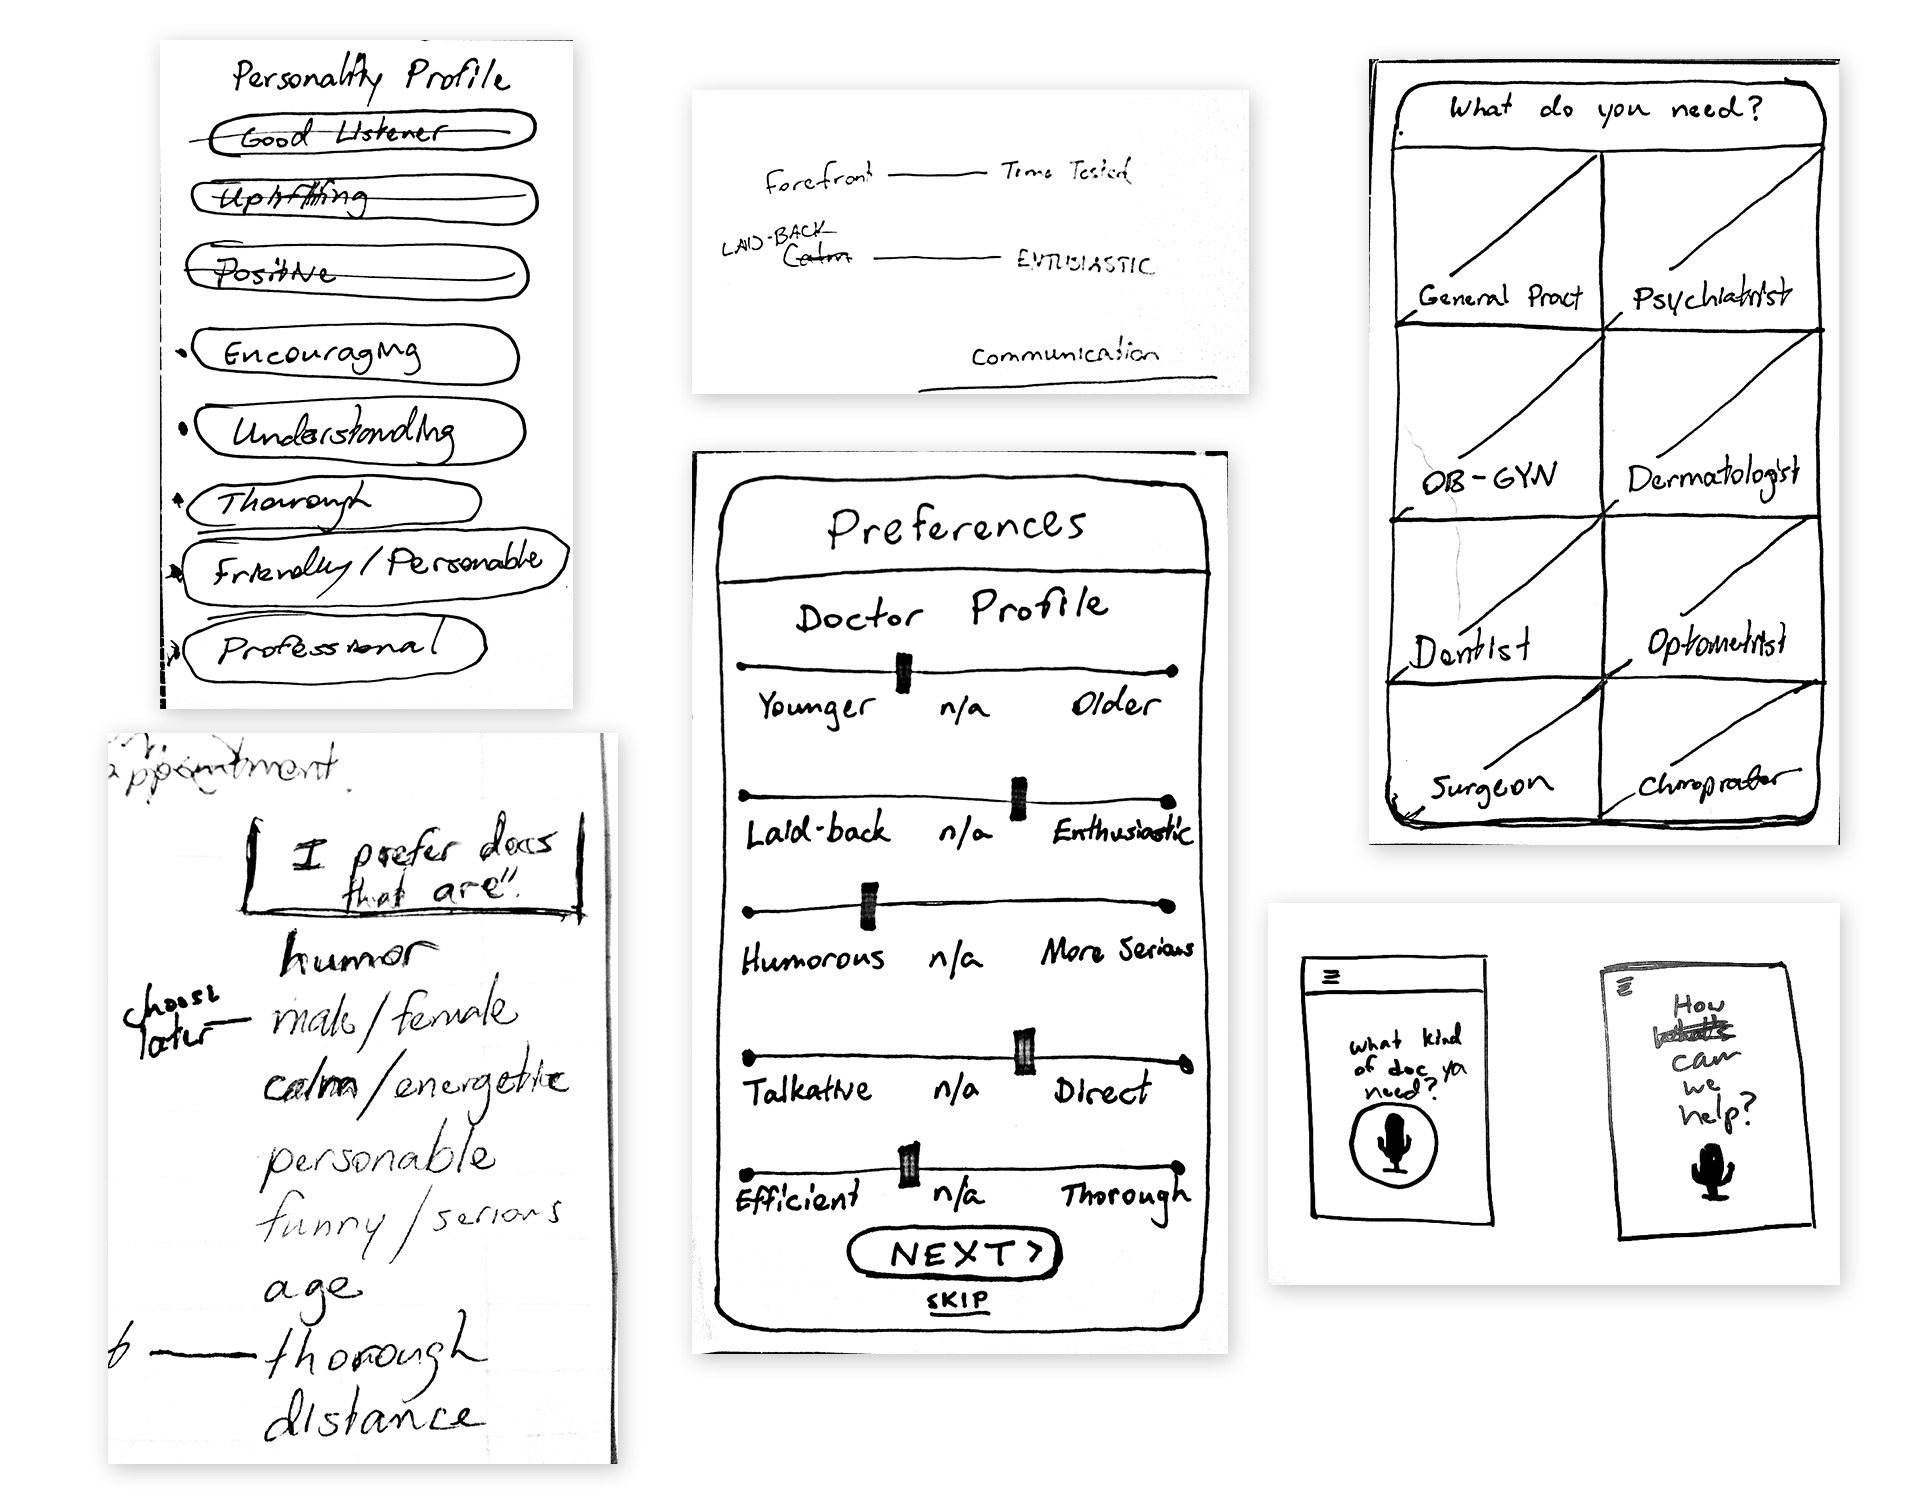 Personality Profile
Good Listener
Uplifting
Positive
Encouraging
Understanding
Thorough
Friendly/Personable
Professional
appointment
I prefer docs
that are".
humor
choose
later
male/female
calm/energetic
personable
funny/serious
age
thorough
distance
Forefront Time Tested
LAID-BACK
Calm ENTUSIASTIC
Communication
Preferences
Doctor Profile
Younger n/a Older
Laid-back n/a Enthusiastic
Humorous n/a More Serious
Talkative n/a Direct
Efficient n/a Thorough
NEXT >
SKIP
What do you need?
General Pract Psychiatrist
OB-GYN Dermatologist
Dentist Optometrist
Surgeon Chiroprator
What kind
of doc ya
need?
How
What's
can
we
help?